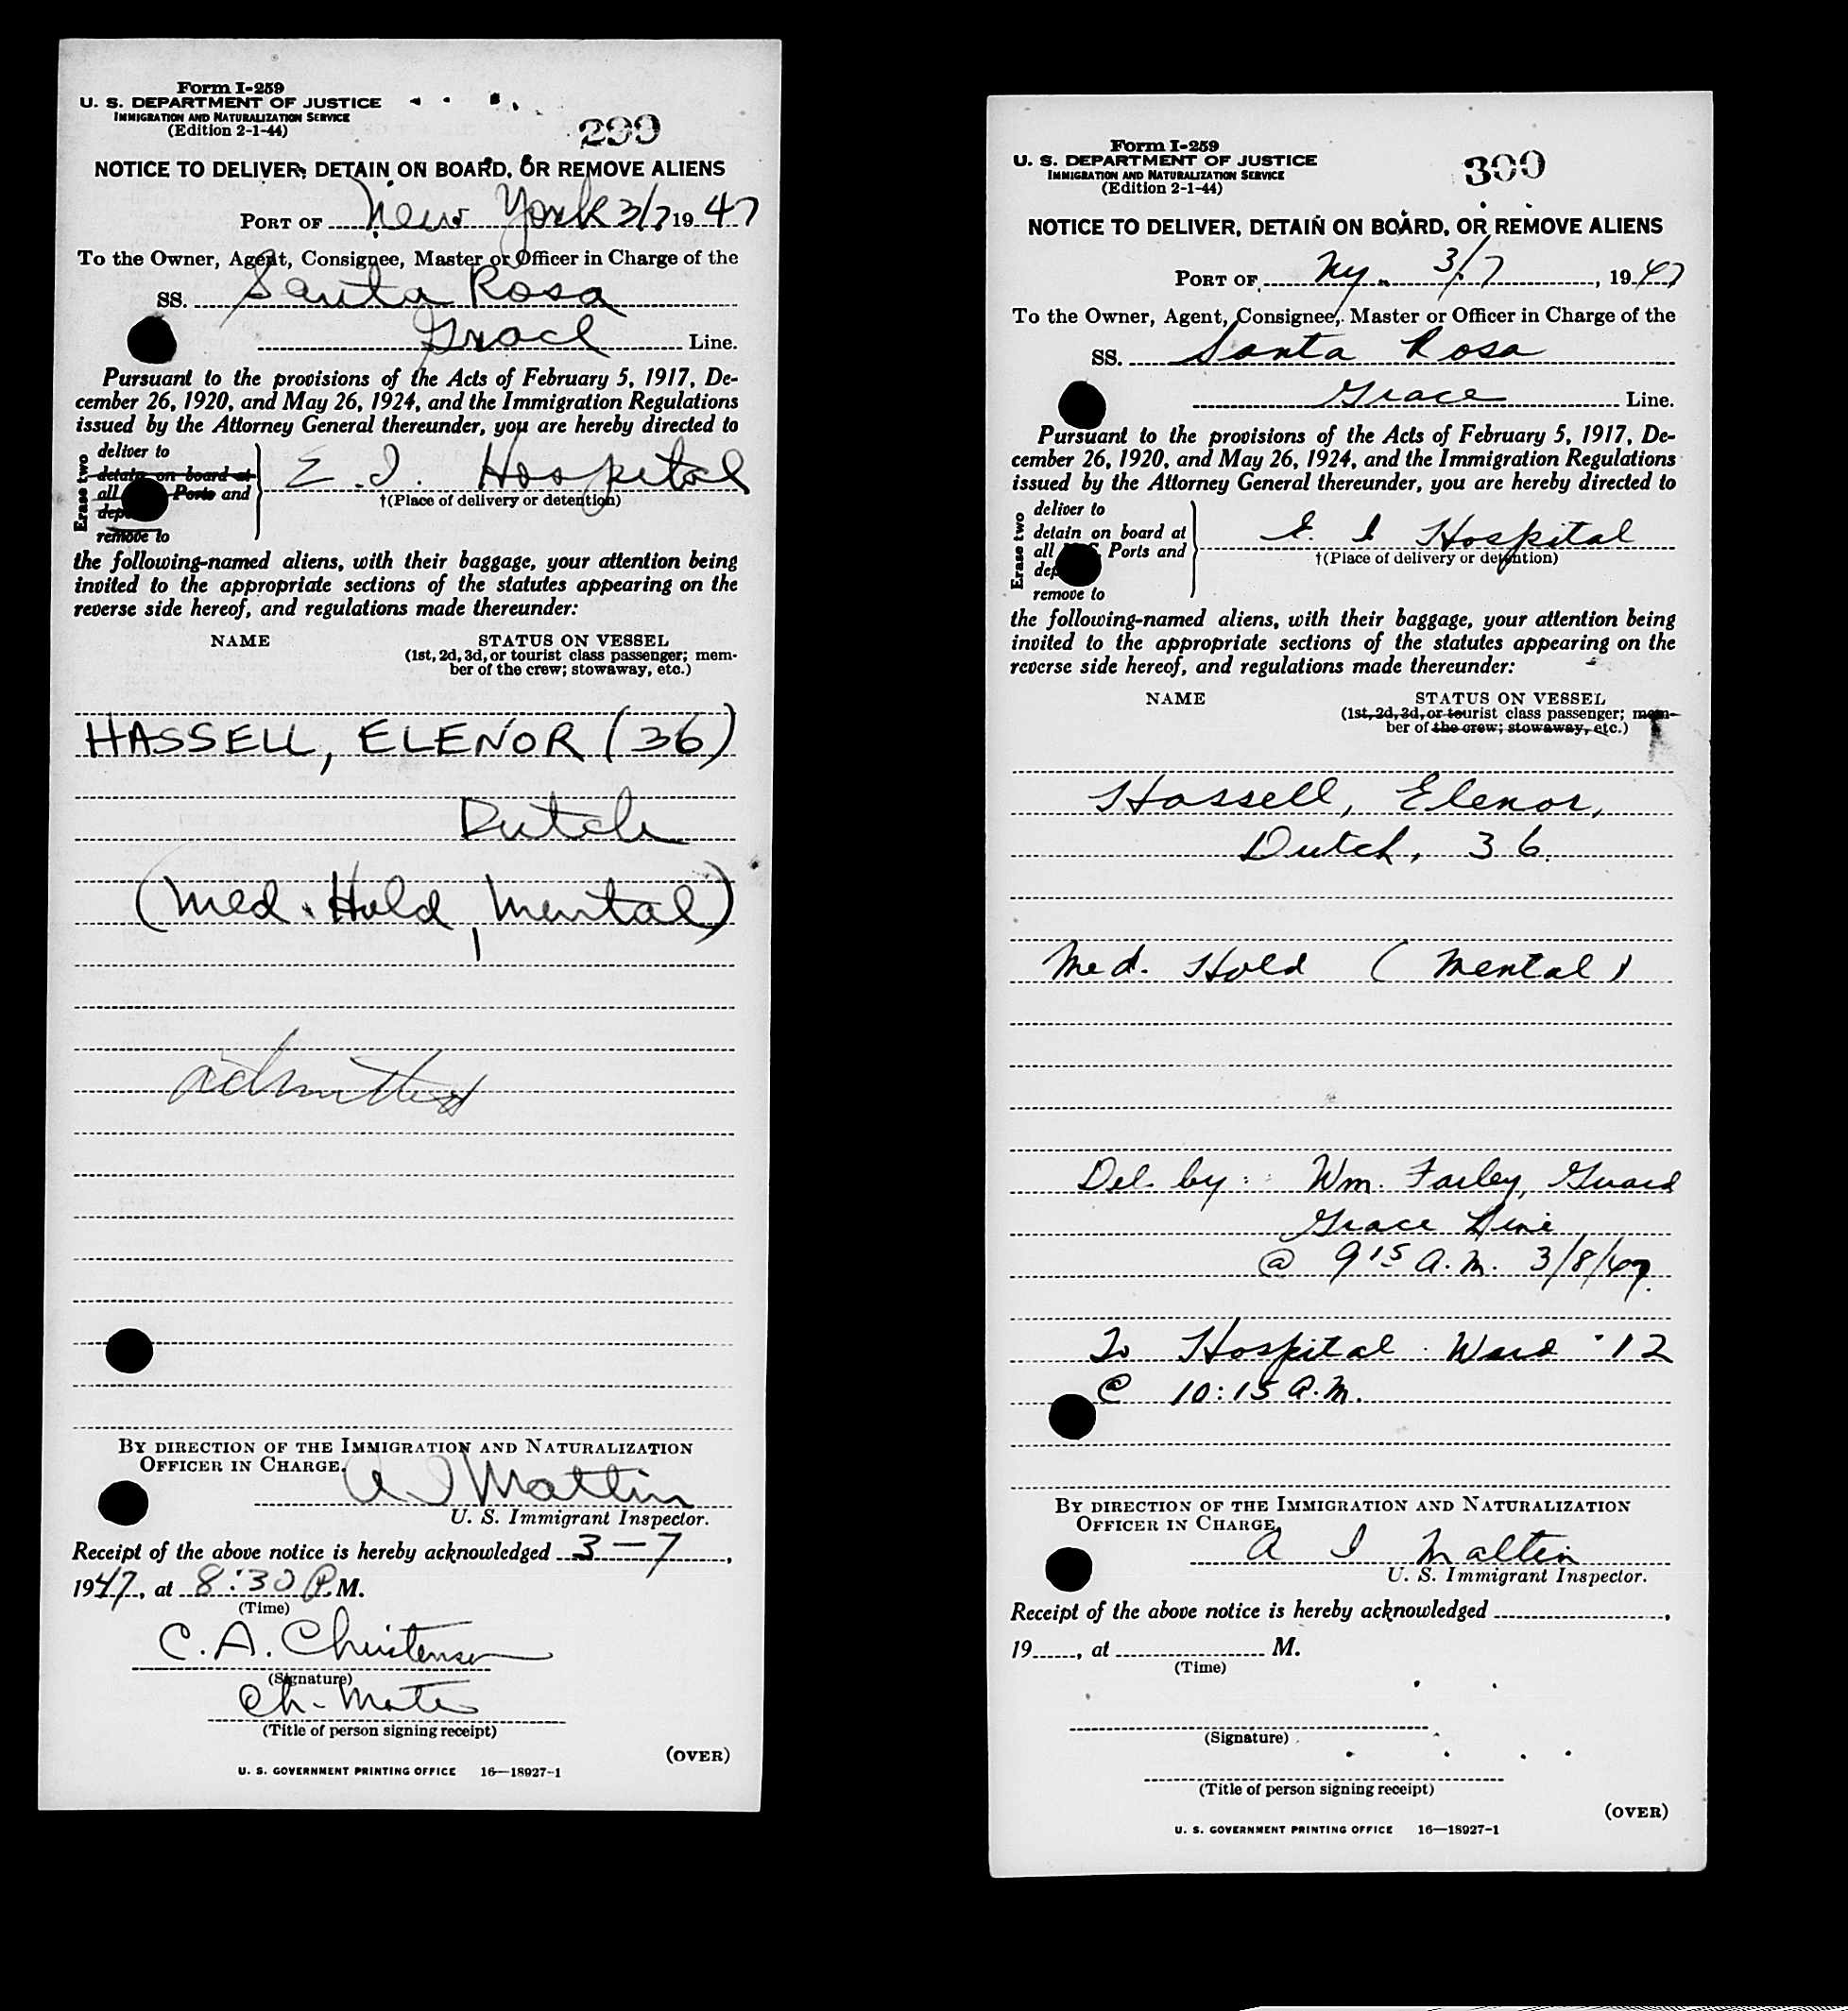 Form I-259
U. S. DEPARTMENT OF JUSTICE
IMMIGRATION AND NATURALIZATION SERVICE
(Edition 2-1-44)
299
NOTICE TO DELIVER, DETAIN ON BOARD, OR REMOVE ALIENS
PORT OF New York 3/7 1947
To the Owner, Agent, Consignee, Master or Officer in Charge of the
SS. Santa Rosa
Grace Line.
Pursuant to the provisions of the Acts of February 5, 1917, De-
cember 26, 1920, and May 26, 1924, and the Immigration Regulations
issued by the Attorney General thereunder, you are hereby directed to
Erase two
deliver to
detain on board at
all Ports and
remove to
E. I. Hospital
†(Place of delivery or detention)
the following-named aliens, with their baggage, your attention being
invited to the appropriate sections of the statutes appearing on the
reverse side hereof, and regulations made thereunder:
NAME STATUS ON VESSEL
(1st, 2d, 3d, or tourist class passenger; mem-
ber of the crew; stowaway, etc.)
HASSELL, ELENOR (36)
Dutch
(Med. Hold, Mental)
admitted
BY DIRECTION OF THE IMMIGRATION AND NATURALIZATION
OFFICER IN CHARGE.
A I Maltin
U. S. Immigrant Inspector.
Receipt of the above notice is hereby acknowledged 3-7,
1947, at 8:30 P.M.
(Time)
C. A. Christensen
(Signature)
Ch. Mate
(Title of person signing receipt)
(OVER)
U. S. GOVERNMENT PRINTING OFFICE 16—18927-1
Form I-259
U. S. DEPARTMENT OF JUSTICE
IMMIGRATION AND NATURALIZATION SERVICE
(Edition 2-1-44)
300
NOTICE TO DELIVER, DETAIN ON BOARD, OR REMOVE ALIENS
PORT OF Ny. 3/7, 1947
To the Owner, Agent, Consignee, Master or Officer in Charge of the
SS. Santa Rosa
Grace Line.
Pursuant to the provisions of the Acts of February 5, 1917, De-
cember 26, 1920, and May 26, 1924, and the Immigration Regulations
issued by the Attorney General thereunder, you are hereby directed to
Erase two
deliver to
detain on board at
all Ports and
remove to
E. I Hospital
†(Place of delivery or detention)
the following-named aliens, with their baggage, your attention being
invited to the appropriate sections of the statutes appearing on the
reverse side hereof, and regulations made thereunder:
NAME STATUS ON VESSEL
(1st, 2d, 3d, or tourist class passenger; mem-
ber of the crew; stowaway, etc.)
Hassell, Elenor,
Dutch, 36.
Med. Hold (Mental)
Del. by: Wm. Farley, Guard
Grace Line
@ 9 15 A.M. 3/8/47.
To Hospital Ward 12
@ 10:15 A.M.
BY DIRECTION OF THE IMMIGRATION AND NATURALIZATION
OFFICER IN CHARGE.
A I Maltin
U. S. Immigrant Inspector.
Receipt of the above notice is hereby acknowledged ,
19 , at M.
(Time)
(Signature)
(Title of person signing receipt)
(OVER)
U. S. GOVERNMENT PRINTING OFFICE 16—18927-1